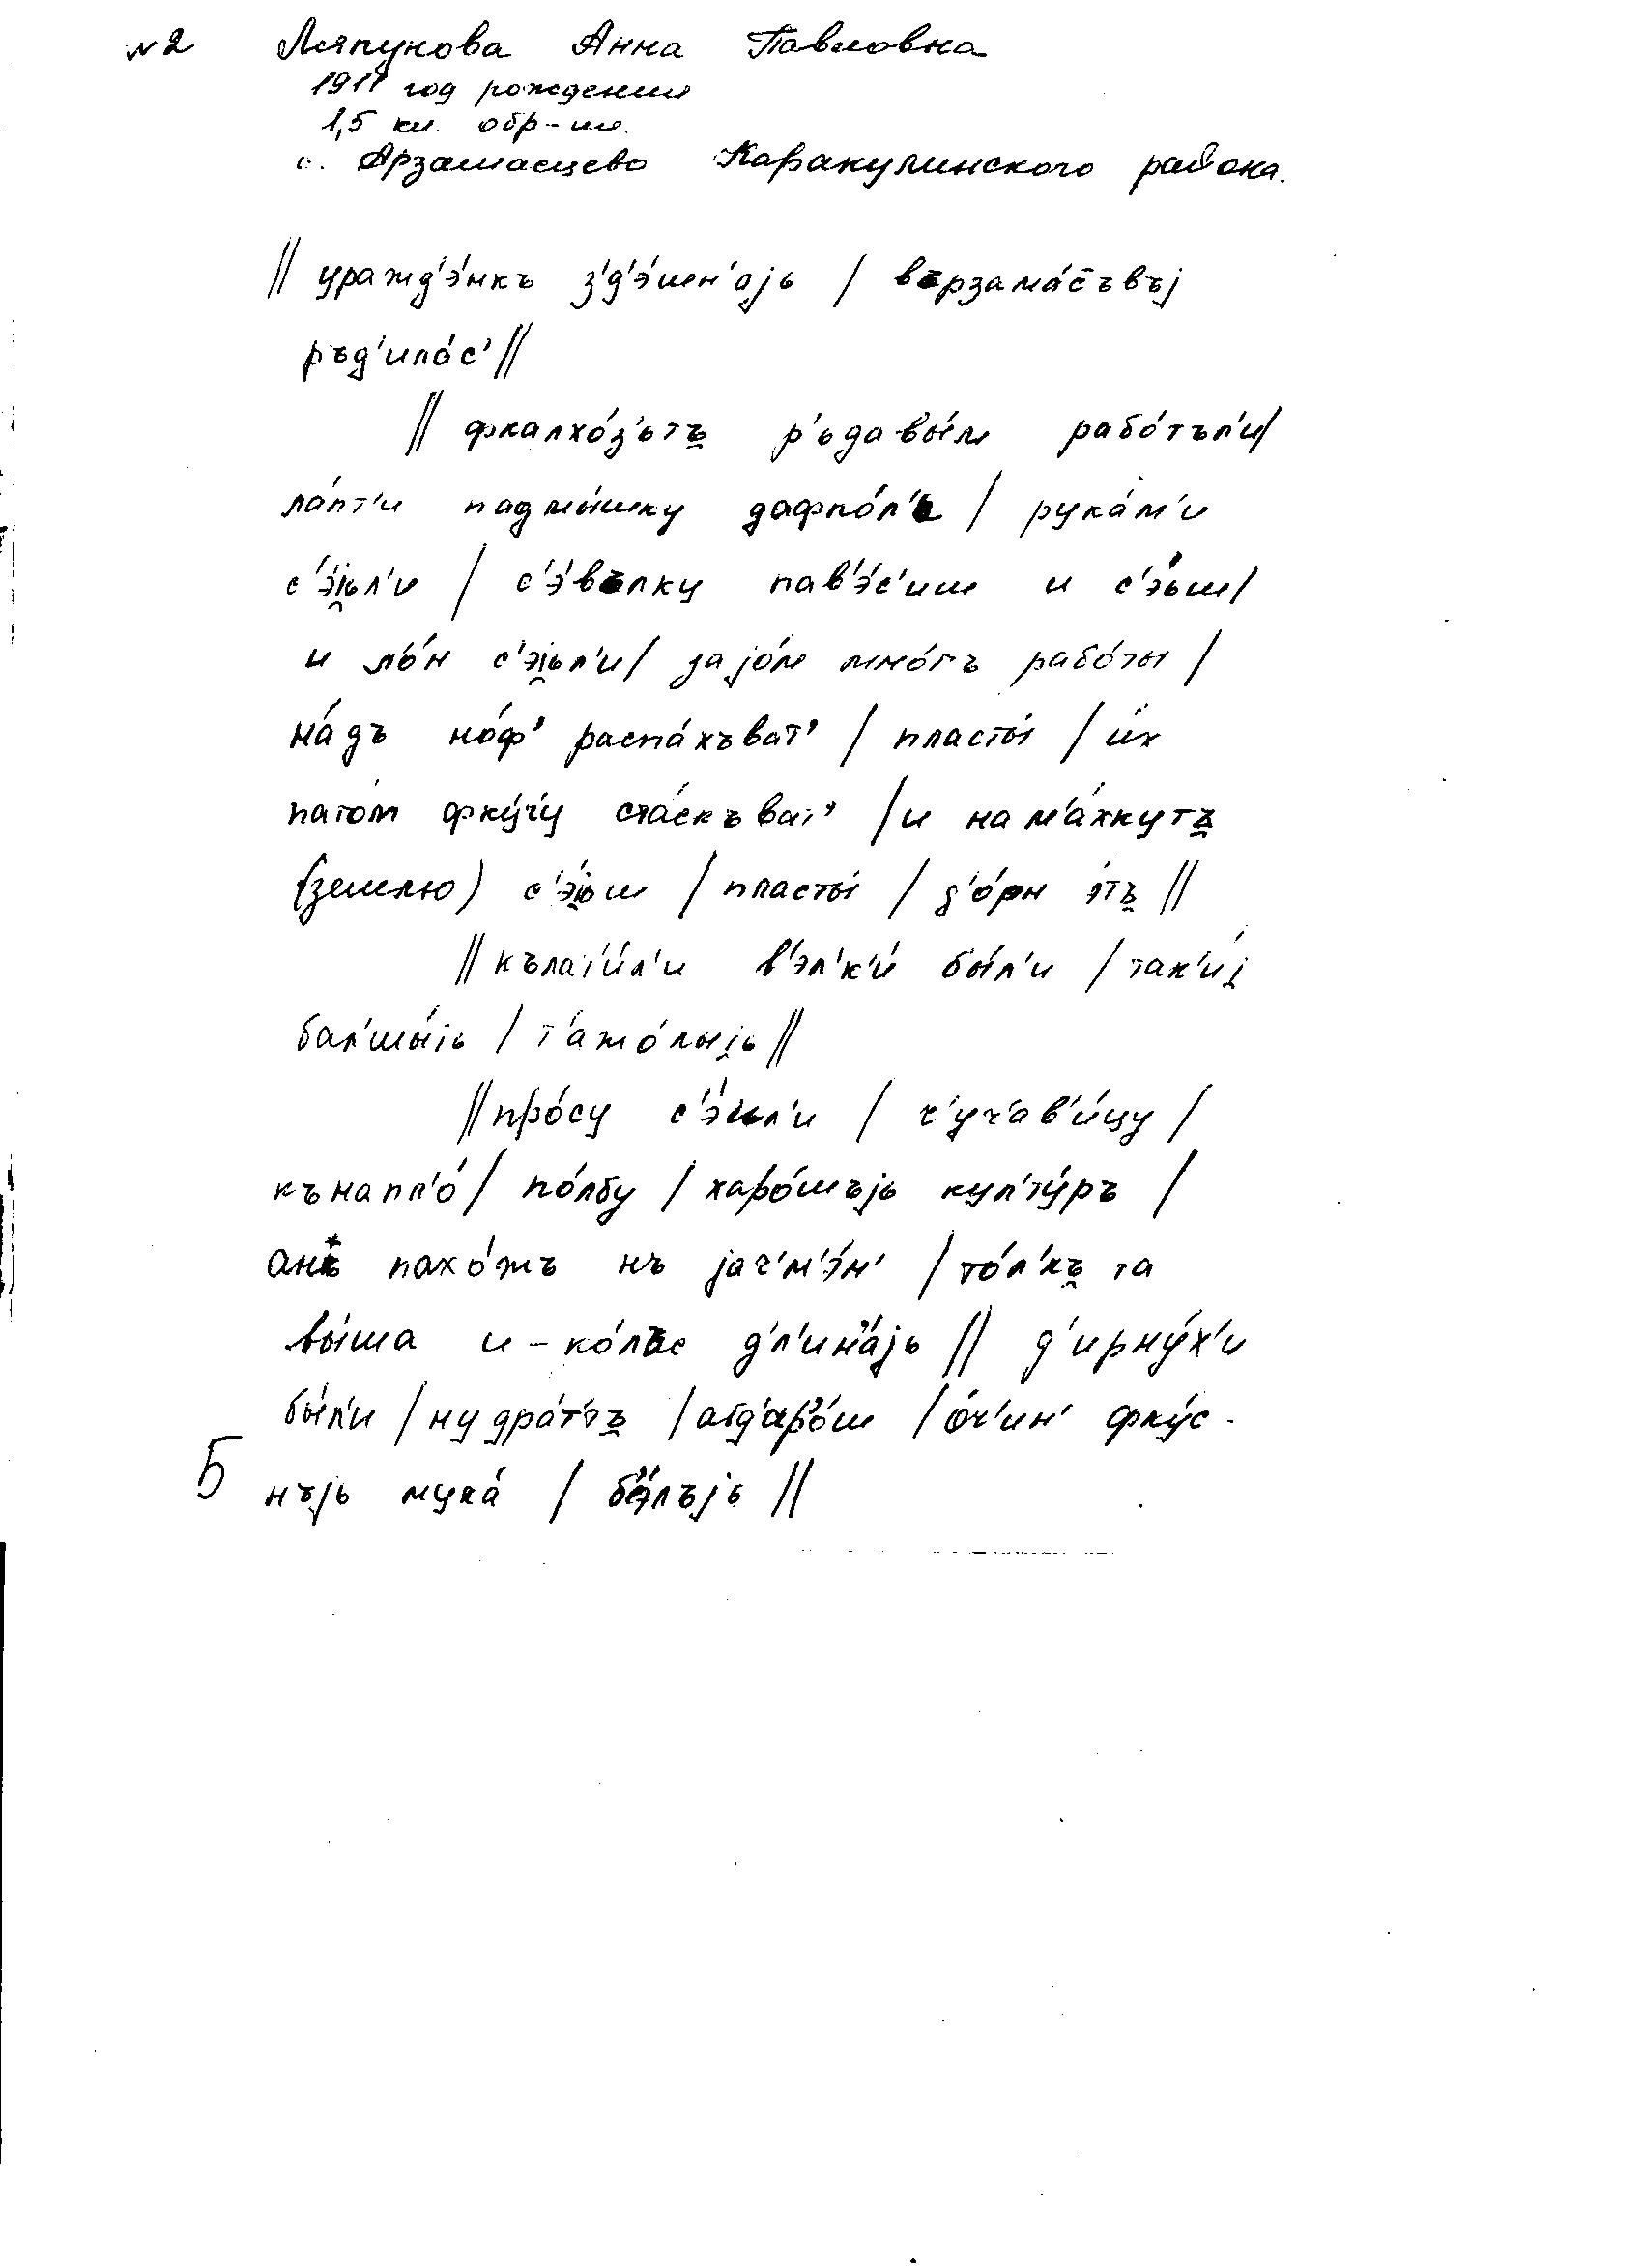 № 2 Ляпунова Анна Павловна
1911 год рождения
1,5 кл. обр-ия.
с. Арзамасцево Каракулинского района.
// уражд'э́нкъ з'д'э́шн'ајь / вързама́с̄ъвъј
ръд'ила́с' //
// фкалхо́з'ьтъ р'ьдавы́м рабо́тъл'и /
ла́пт'и падмы́шку дафпо́л'ь / рука́м'и
с'э́јьл'и / с'э́вълку пав'э́с'иш и с'э́ьш /
и л'о́н с'э́јьл'и / зајо́м мно́гъ рабо́ты /
на́дъ но́ф' распа́хъват' / пласты́ / и́х
пато́м фку́ч'у ста́скъват' / и нам'а́хкутъ
(землю) с'э́јьш / пласты́ / д'о́рн э́тъ //
// кълат'и́л'и в'эл'к'и́ бы́л'и / так'и́ј
бал'шы́јь / т'ажо́лыјь //
// про́су с'э́ил'и / ч'уч'ав'и́цу /
кънапл'о́ / по́лбу / харо́шъјь кул'ту́ръ /
анъ пахо́жъ нъ јач'м'э́н' / то́л'къ та
вы́ша и - ко́лъс д'л'ин'а́јь // д'ирну́х'и
бы́л'и / ну дра́т'ьтъ / абд'ар'о́ш / о́ч'ин' фку́с -
нъјь мука́ / б'э́лъјь //
5